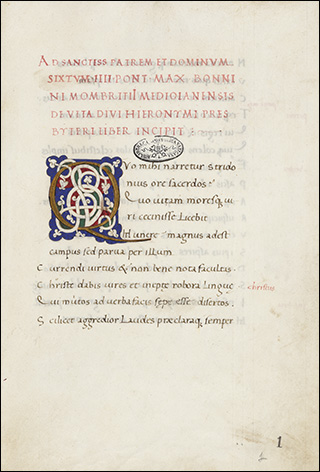 AD SANCTISS PATREM ET DOMINVM
SIXTVM IIII PONT MAX BONNI
NI MOMBRITII MEDIOLANENSIS
DE VITA DIVI HIERONYMI PRES
BYTERI LIBER INCIPIT :
Quo mihi narretur strido
nius ore sacerdos?
Quo uitam moresq. ui
ri cecinisse licebit
magnus adest
campus sed parua per illum
Currendi uirtus & non bene nota facultas.
Christe dabis uires et inepte robora lingue
christus
Qui mutos ad uerba facis sepe esse disertos.
Scilicet aggredior Laudes præclaraq. semper
1